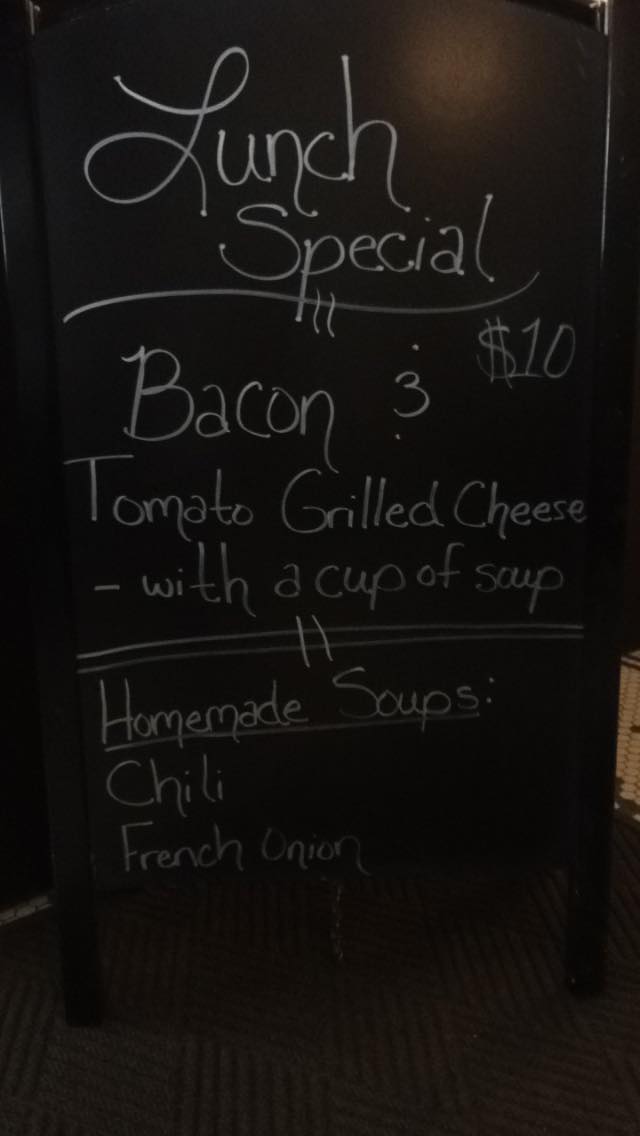 Lunch
Special
$10
Bacon &
Tomato Grilled Cheese
- with a cup of soup
Homemade Soups:
Chili
French Onion